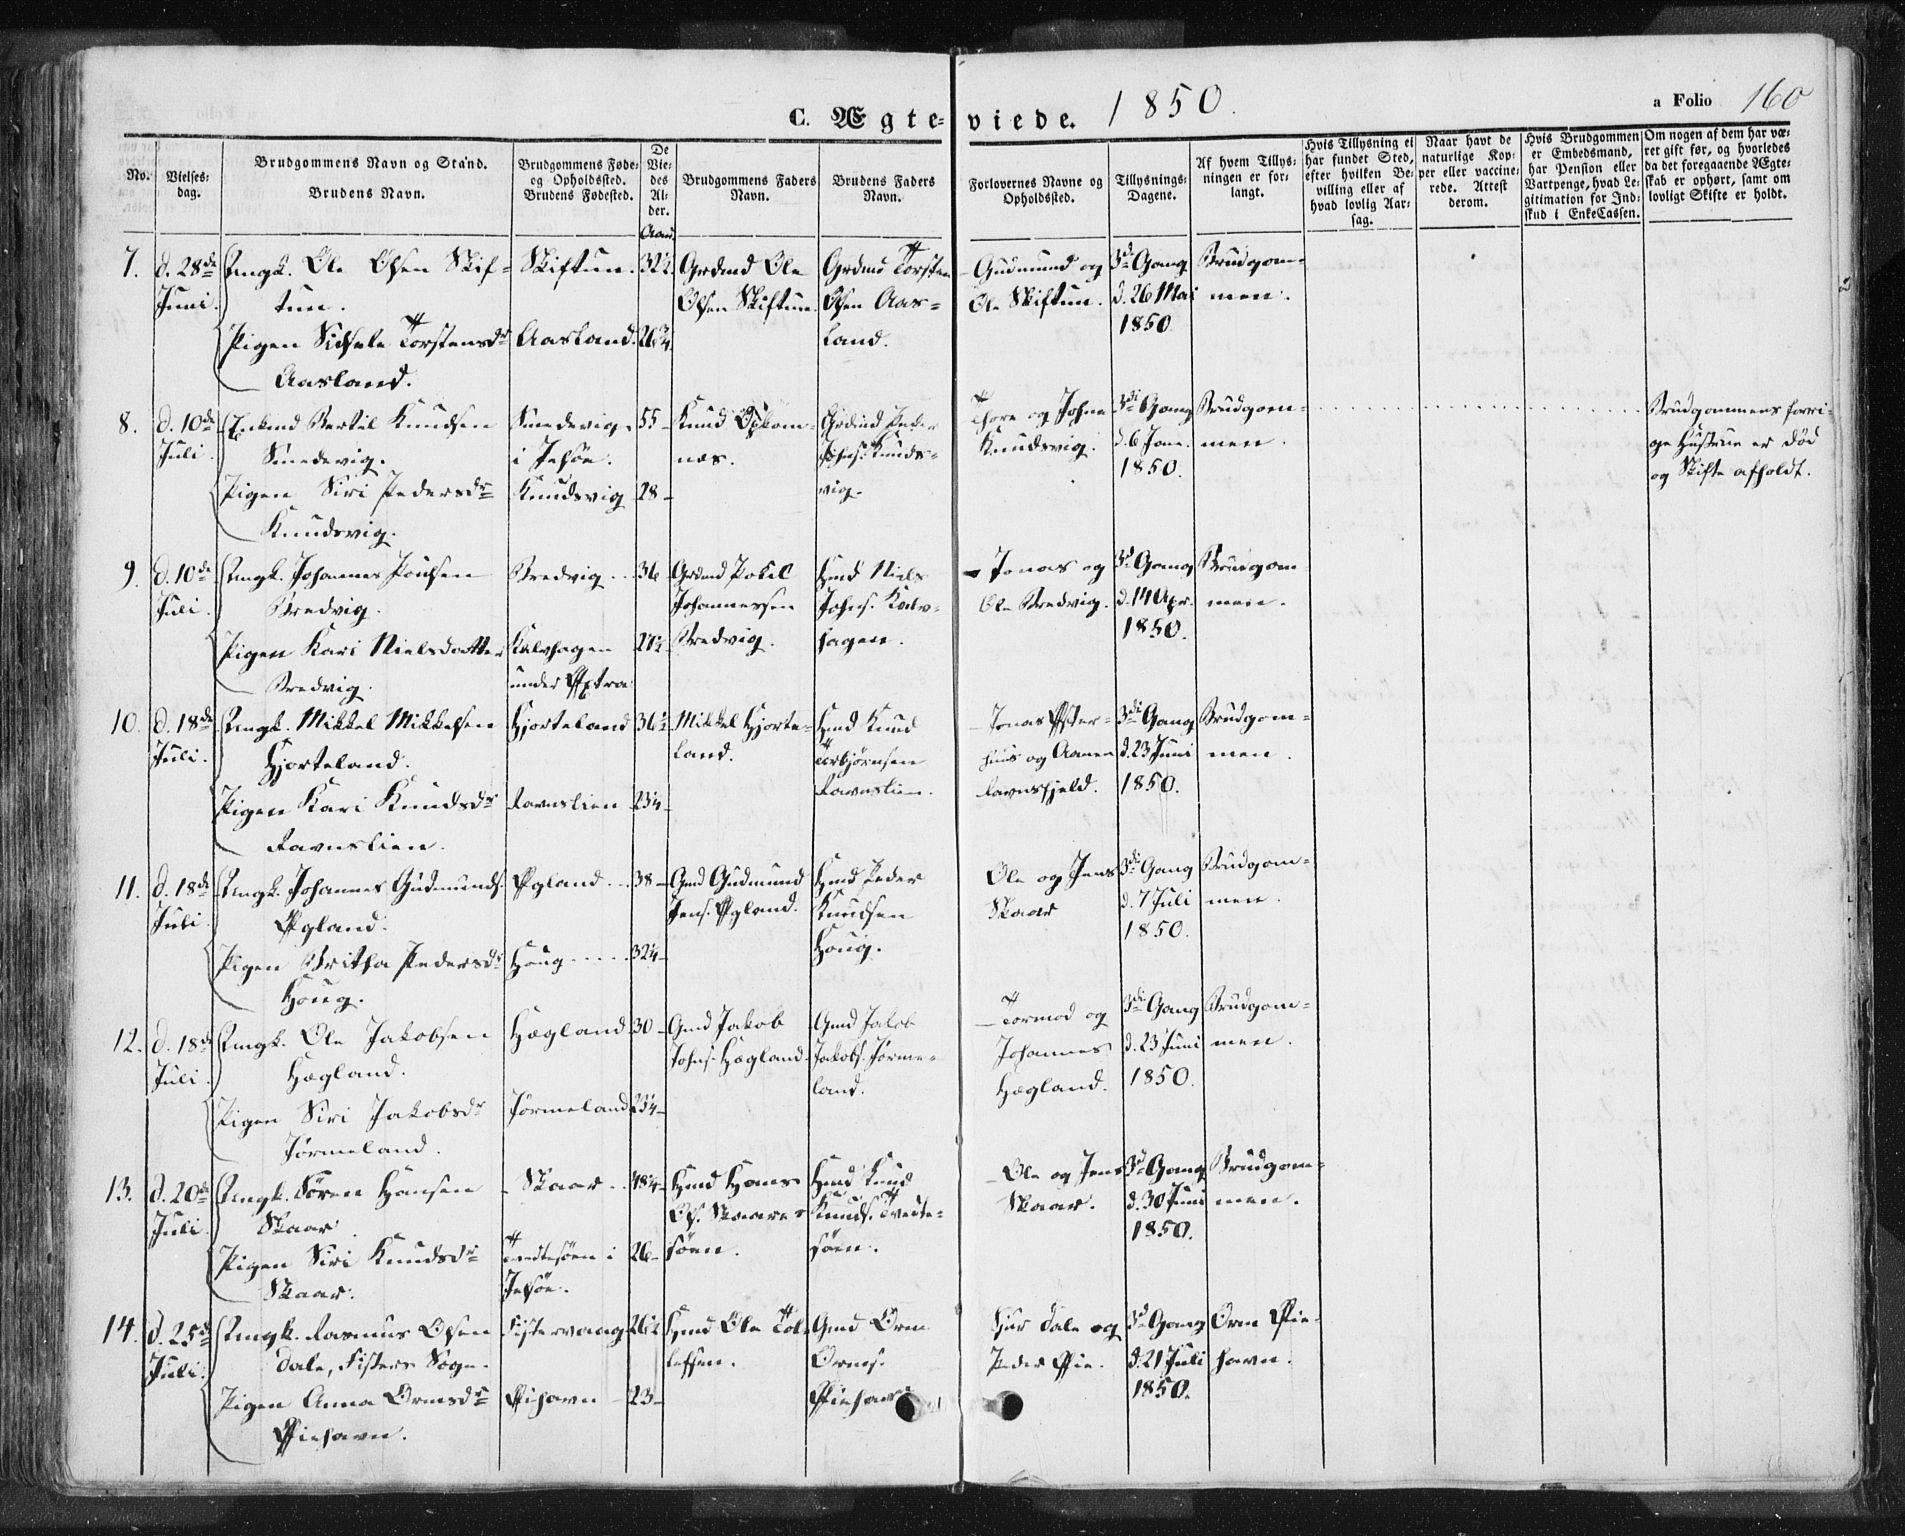 C. Ægteviede. 1850. a Folio 160
No.
Vielsesdag.
Brudgommens Navn og Stand.
Brudens Navn.
Brudgommens Føde-
og Opholdssted.
Brudens Fødested.
De
Vie-
des
Al-
der.
Brudgommens Faders
Navn.
Brudens Faders
Navn.
Forlovernes Navne og
Opholdssted.
Tillysnings-
Dagene.
Af hvem Tillys-
ningen er for-
langt.
Hvis Tillysning ei
har fundet Sted,
efter hvilken Be-
villing eller af
hvad lovlig Aar-
sag.
Naar havt de
naturlige Kop-
per eller vaccine-
rede. Attest
derom.
Hvis Brudgommen
er Embedsmand,
har Pension eller
Vartpenge, hvad Le-
gitimation for Ind-
skud i EnkeCassen.
Om nogen af dem har væ-
ret gift før, og hvorledes
da det foregaaende Ægte-
skab er ophørt, samt om
lovligt Skifte er holdt.
7.
d. 28de
Juni.
Ungk. Ole Olsen Skif-
tun.
Pigen Sidsele Torstensdr
Aasland.
Skiftun.
Aasland.
32½
26¾
Grdmd Ole
Olsen Skiftun.
Grdmd Torsten
Olsen Aas-
land.
Gudmund og
Ole Skiftun.
3d Gang
d. 26 Mai
1850
Brudgom-
men.
8.
d. 10de
Juli.
Enkemd Bertil Knudsen
Smedevig.
Pigen Siri Pedersdr
Knudsvig.
Smedevig
i Jelsøe.
Knudsvig
55
28
Knud
næs.
Grdmd Peder
Johns. Knuds-
vig.
Thore og Johne
Knudsvig.
3di Gang
d. 6 Jan.
1850.
Brudgom-
men.
Brudgommens forri-
ge Hustrue er død
og Skifte afholdt.
9.
d. 10de
Juli.
Ungk. Johannes Poulsen
Bredvig.
Pigen Kari Nielsdatter
Bredvig.
Bredvig
Kalvhagen
under
36
27½
Grdmd Povel
Johannessen
Bredvig.
Hmd Niels
Johns. Kalv-
hagen.
Jonas og
Ole Bredvig.
3d Gang
d. 14 Apr.
1850.
Brudgom-
men.
10.
d. 18de
Juli.
Ungk. Mikkel Mikkelsen
Hjorteland.
Pigen Kari Knudsdr
Ravnslien.
Hjorteland
Ravnslien
36½
23¼
Mikkel Hjorte-
land.
Hmd Knud
Torbjørnsen
Ravnslien.
Jonas Øster-
huus og Aanen
Ravnsfjeld.
3di Gang
d. 23 Juni
1850.
Brudgom-
men.
11.
d. 18de
Juli.
Ungk. Johannes Gudmunds.
Øgland.
Pigen Britha Pedersdr
Houg.
Øgland
Houg
38
32¼
Gmd Gudmund
Jens. Øgland.
Hmd Peder
Knudsen
Houg.
Ole og Jens
Skaar
3di Gang
d. 7 Juli
1850.
Brudgom-
men.
12.
d. 18de
Juli.
Ungk. Ole Jakobsen
Hægland.
Pigen Siri Jakobsdr
Jørmeland.
Hægland
Jørmeland
30
23¼
Gmd Jakob
Johns. Hægland.
Gmd Jakob
Jakobs. Jørme-
land.
Tormod og
Johannes
Hægland.
3di Gang
d. 23 Juni
1850.
Brudgom-
men.
13.
d. 20de
Juli.
Ungk. Søren Hansen
Skaar.
Pigen Siri Knudsdr
Skaar.
Skaar
Tvedtesøen i
Jelsøe.
48¼
26
Hmd Hans
Ols. Skaare-
søen.
Hmd Knud
Knuds. Tvedte-
søen.
Ole og Jens
Skaar.
3d Gang
d. 30 Juni
1850.
Brudgom-
men.
14.
d. 25de
Juli.
Ungk. Rasmus Olsen
Dale, Fisters Sogn.
Pigen Anna Ormsdr
Fistervaag
26½
23
Hmd Ole Tol-
lefsen.
Gmd Orm
Orms.
Sjur Dale og
Peder
3d Gang
d. 21 Juli
1850.
Orm
havn.